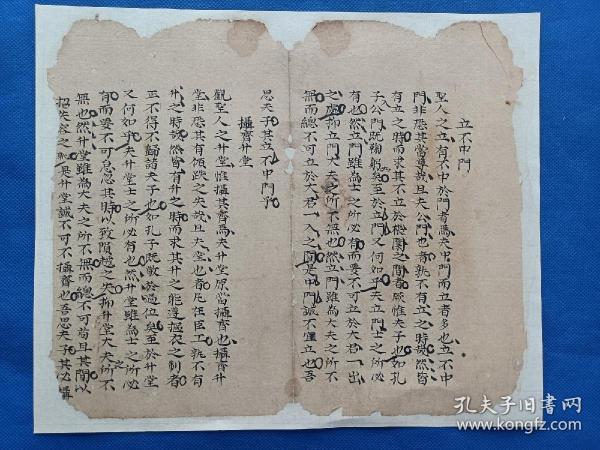 立不中門
聖人之立有不中於門者焉夫中門而立者多也立不中
門非恐其當尊哉且夫公門也者孰不有立之時哉然皆
有立之時而求其不立於棖闑之間者厥惟夫子也如孔
子公門既鞠躬矣至於立門又何如乎夫立門士之所必
有也然立門雖為士之所必有而要不可立於大君一出
之處抑立門大夫之所不無也然立門雖為大夫之所不
無而總不可立於大君一入之間是中門誠不宜立也吾
思夫子其立不中門乎
攝齊升堂
觀聖人之升堂惟攝其齊焉夫升堂原當攝齊也攝齊升
堂非恐其有傾跌之失哉且夫堂也者凡在臣工孰不有
升之時哉然皆有升之時而求其升之能謹摳衣之制者
正不得不歸諸夫子也如孔子既敬於過位矣至於升堂
又何如乎夫升堂士之所必有也然升堂雖為士之所必
有而要不可怠忽其時以致隕越之失抑升堂大夫之所不
無也然升堂雖為大夫之所不無而總不可苟且其間以
招失容之恥是升堂誠不可不攝齊也吾思夫子其必攝
孔夫子旧书网
www.kongfz.com